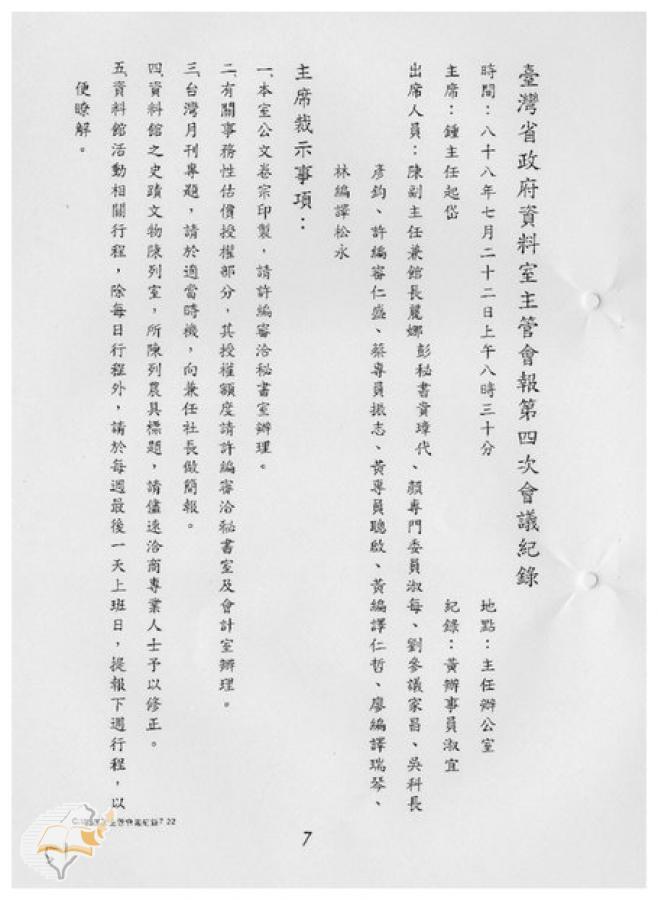 臺灣省政府資料室主管會報第四次會議紀錄
時間：八十八年七月二十二日上午八時三十分　地點：主任辦公室
主席：鍾主任起岱　紀錄：黃辦事員淑宜
出席人員：陳副主任兼館長麗娜 彭秘書貴璋代、顏專門委員淑每、劉參議家昌、吳科長
彥鈞、許編審仁盛、蔡專員振志、黃專員聰啟、黃編譯仁哲、廖編譯瑞琴、
林編譯松永
主席裁示事項：
一、本室公文卷宗印製，請許編審洽秘書室辦理。
二、有關事務性估價授權部分，其授權額度請許編審洽秘書室及會計室辦理。
三、台灣月刊專題，請於適當時機，向兼任社長做簡報。
四、資料館之史蹟文物陳列室，所陳列農具標題，請儘速洽商專業人士予以修正。
五、資料館活動相關行程，除每日行程外，請於每週最後一天上班日，提報下週行程，以
便瞭解。
7